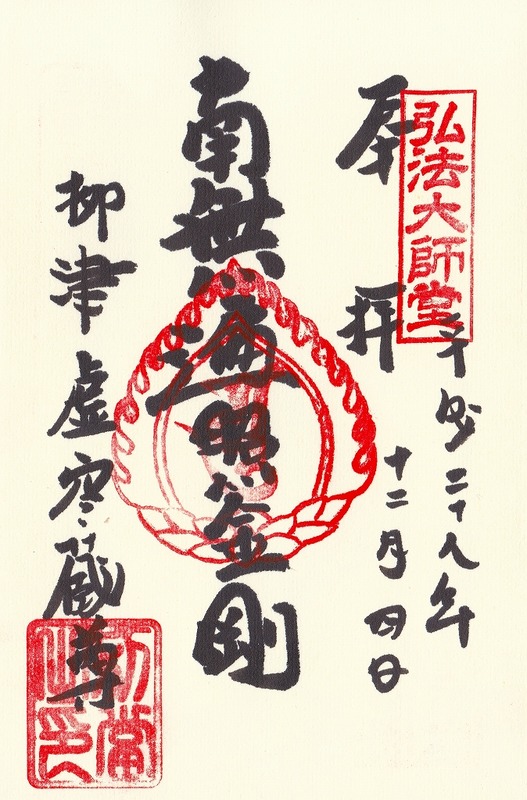 弘法大師堂
奉拝
平成二十八年
十二月四日
南無遍照金剛
柳津虚空蔵尊